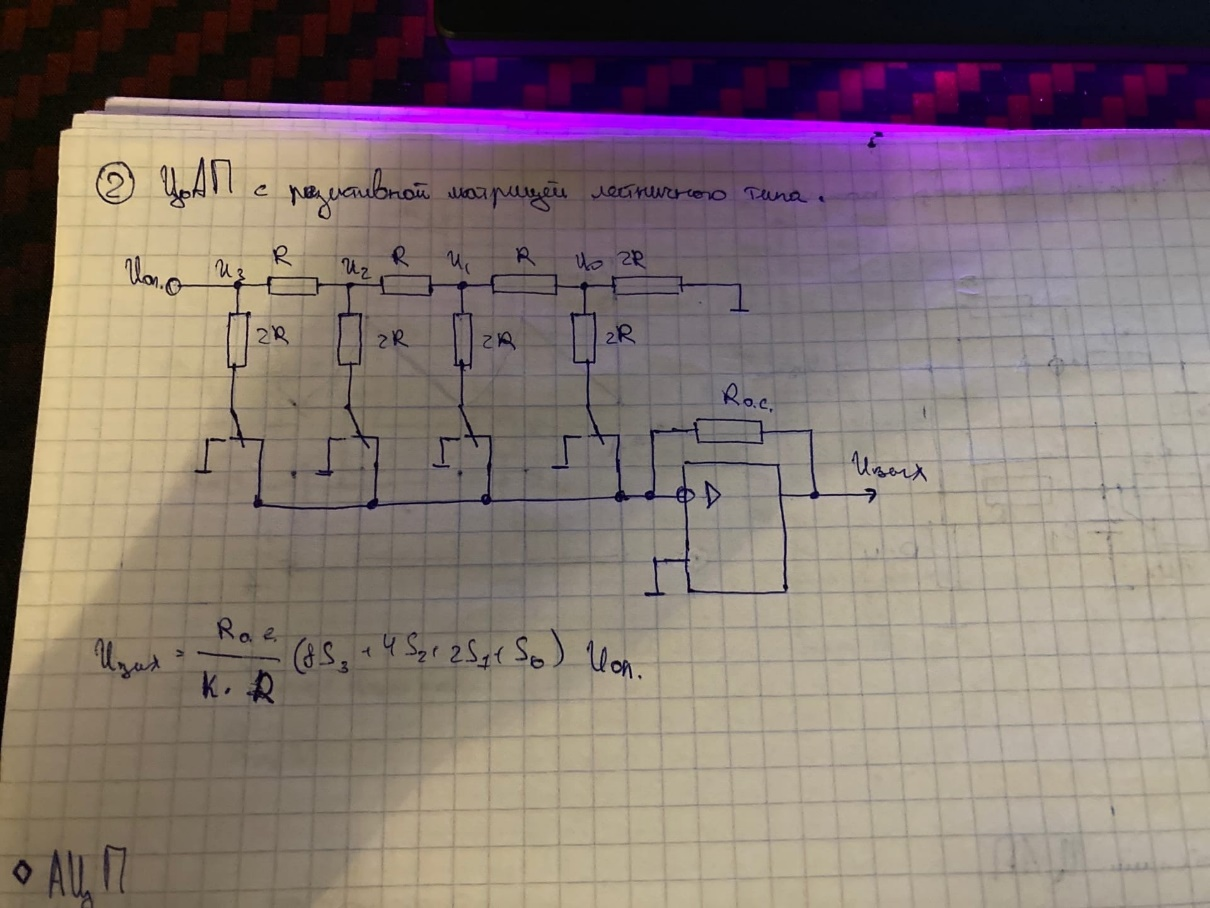 ② ЦАП с резистивной матрицей лестничного типа.
Uоп. U3 R U2 R U1 R U0 2R
2R 2R 2R 2R
Rо.с.
Uвых
Uвых = Rо.с. / K · R (8S3 + 4S2 + 2S1 + S0) Uоп.
◇ АЦП